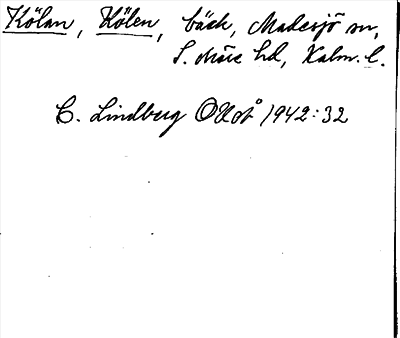 Kölan, Kölen, bäck, Madesjö sn,
S. Möre hd, Kalm. l.
C. Lindberg OUoÅ 1942:32